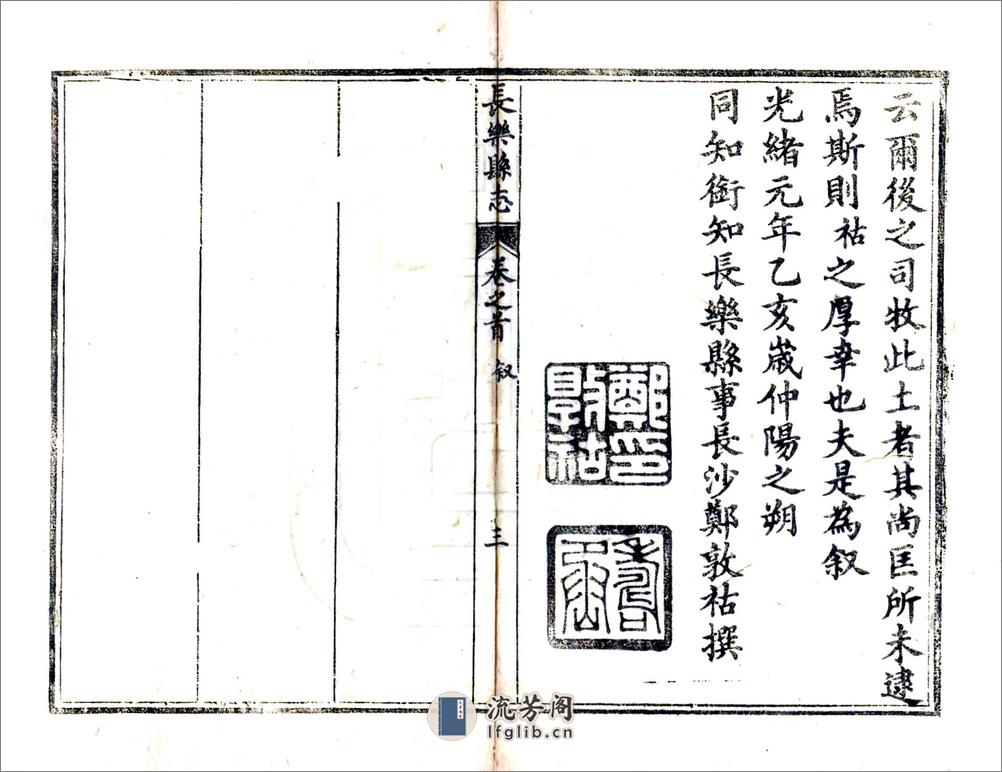 云爾後之司牧此土者其尚匡所未逮
焉斯則祜之厚幸也夫是為叙
光緒元年乙亥歲仲陽之朔
同知銜知長樂縣事長沙鄭敦祜撰
鄭印
敦祜
長樂縣志
卷之首 叙
三
流芳阁
lfglib.cn